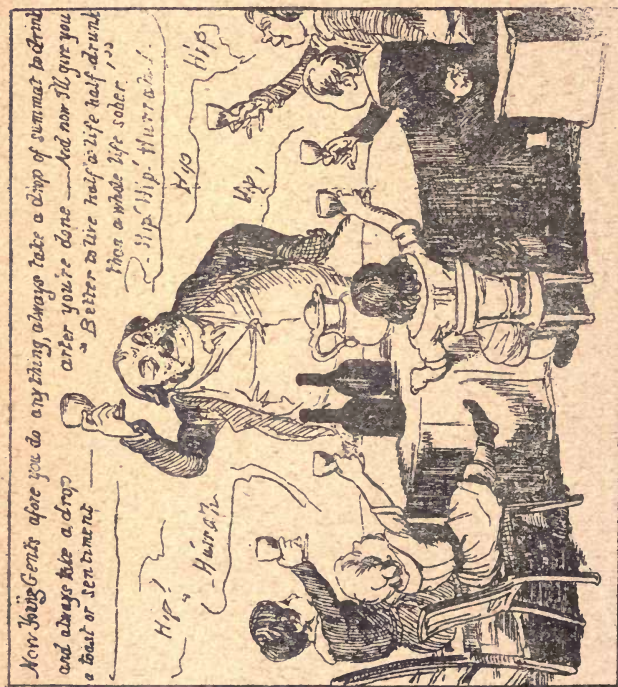 Now Young Gents afore you do any thing, always take a drop of summat to drink
and always take a drop after you're done — And now I'll give you
a toast or sentiment — "Better to live half a life half-drunk
than a whole life sober,"
Hip! Hip! Hurrah!
Hip
Hip
Hip,
Hip!
Hurrah